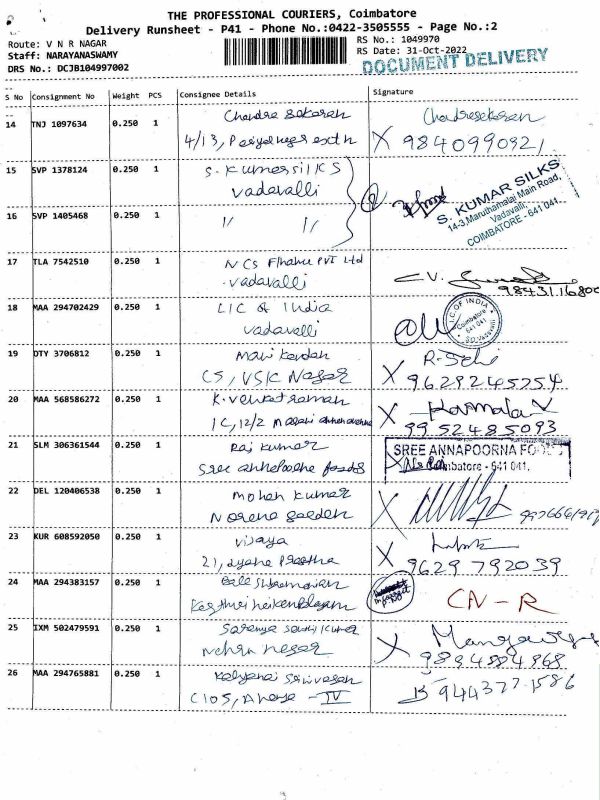 THE PROFESSIONAL COURIERS, Coimbatore
Delivery Runsheet - P41 - Phone No.:0422-3505555 - Page No.:2
Route: V N R NAGAR
Staff: NARAYANASWAMY
DRS No.: DCJB104997002
RS No.: 1049970
RS Date: 31-Oct-2022
DOCUMENT DELIVERY
S No Consignment No Weight PCS Consignee Details Signature
14 TNJ 1097634 0.250 1
4/13,
X 9840990921
15 SVP 1378124 0.250 1 S. Kumar SILKS
Vadavalli
S. KUMAR SILKS
14-3, Maruthamalai Main Road,
Vadavalli,
COIMBATORE - 641 041
16 SVP 1405468 0.250 1 " "
17 TLA 7542510 0.250 1 NCS PVT Ltd
Vadavalli
C.V.
98431.16800
18 MAA 294702429 0.250 1 LIC of India
Vadavalli
L.I.C. OF INDIA
Coimbatore
641 041
S.O. Vadavalli
19 DTY 3706812 0.250 1
C5, VSK Nagar
X 9629245754
20 MAA 568586272 0.250 1 K. Venkatraman
1C, 12/2
X Kamala V
9952485093
21 SLM 306361544 0.250 1 Raj Kumar
Sree annapoorna foods
SREE ANNAPOORNA FOODS
Coimbatore - 641 041.
22 DEL 120406538 0.250 1 Mohan Kumar
X
23 KUR 608592050 0.250 1 Vijaya
21,
X 9629 792039
24 MAA 294383157 0.250 1 Bala Subramanian
CN-R
25 IXM 502479591 0.250 1
Nehru nagar
X 9894884868
26 MAA 294765881 0.250 1 Kalyani Srinivasan
C105, - IV
944377.1586